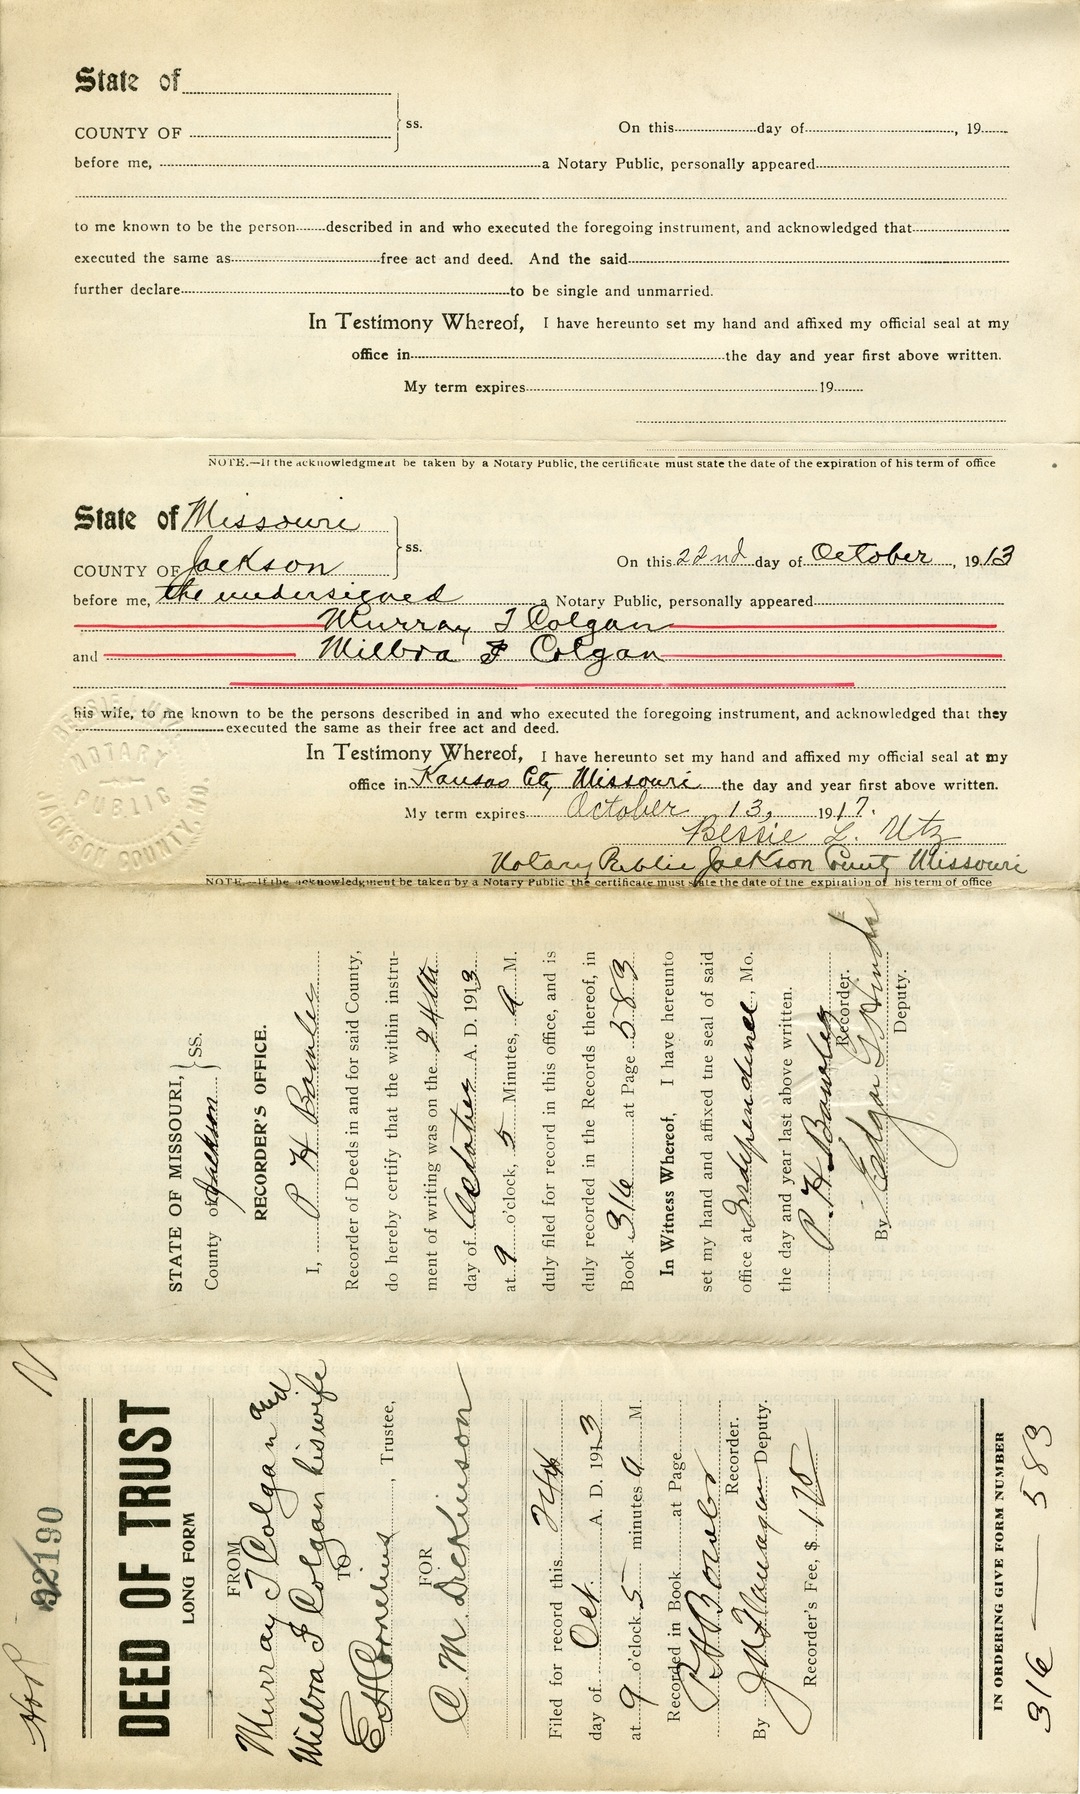 State of
COUNTY OF
ss.
On this day of , 19
before me, a Notary Public, personally appeared
to me known to be the person described in and who executed the foregoing instrument, and acknowledged that
executed the same as free act and deed. And the said
further declare to be single and unmarried.
In Testimony Whereof, I have hereunto set my hand and affixed my official seal at my
office in the day and year first above written.
My term expires 19
NOTE.—If the acknowledgment be taken by a Notary Public, the certificate must state the date of the expiration of his term of office
State of Missouri
COUNTY OF Jackson
ss.
On this 22nd day of October, 1913
before me, the undersigned a Notary Public, personally appeared
Murray T Colgan
and Wilbra F Colgan
his wife, to me known to be the persons described in and who executed the foregoing instrument, and acknowledged that they
executed the same as their free act and deed.
In Testimony Whereof, I have hereunto set my hand and affixed my official seal at my
office in Kansas City Missouri the day and year first above written.
My term expires October 13, 1917.
Bessie L. Utz
Notary Public Jackson County Missouri
NOTARY
PUBLIC
JACKSON COUNTY, MO.
NOTE.—If the acknowledgment be taken by a Notary Public the certificate must state the date of the expiration of his term of office
STATE OF MISSOURI,
County of Jackson
SS.
RECORDER'S OFFICE.
I,
Recorder of Deeds in and for said County,
do hereby certify that the within instru-
ment of writing was on the 24th
day of October A. D. 1913
at 9 o'clock, 5 Minutes, A M.
duly filed for record in this office, and is
duly recorded in the Records thereof, in
Book 316 at Page 583
In Witness Whereof, I have hereunto
set my hand and affixed the seal of said
office at Independence, Mo.
the day and year last above written.
Recorder.
By Edgar G
Deputy.
92190
DEED OF TRUST
LONG FORM
FROM
Murray T Colgan and
Wilbra F Colgan his wife
TO
E H Cornelius, Trustee,
FOR
C M Dickinson
Filed for record this 24th
day of Oct. A. D. 1913
at 9 o'clock 5 minutes A M.
Recorded in Book at Page
Recorder.
By J A Flanagan Deputy.
Recorder's Fee, $
IN ORDERING GIVE FORM NUMBER
316 — 583